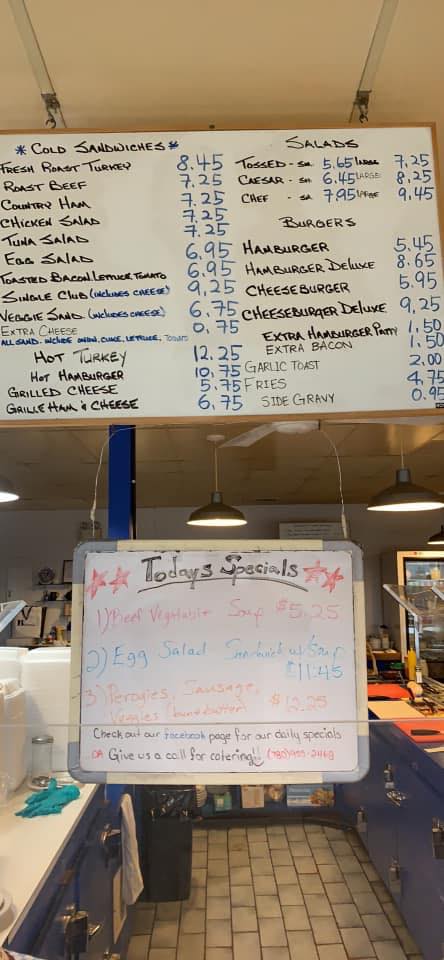 * COLD SANDWICHES *
FRESH ROAST TURKEY 8.45
ROAST BEEF 7.25
COUNTRY HAM 7.25
CHICKEN SALAD 7.25
TUNA SALAD 7.25
EGG SALAD 6.95
TOASTED BACON, LETTUCE, TOMATO 6.95
SINGLE CLUB (INCLUDES CHEESE) 9.25
VEGGIE SAND (INCLUDES CHEESE) 6.75
EXTRA CHEESE 0.75
ALL SAND. INCLUDE ONION, CUKE, LETTUCE, TOMATO
HOT TURKEY 12.25
HOT HAMBURGER 10.75
GRILLED CHEESE 5.75
GRILLE HAM & CHEESE 6.75
SALADS
TOSSED - SM. 5.65 LARGE 7.25
CAESAR - SM 6.45 LARGE 8.25
CHEF - SM 7.95 LARGE 9.45
BURGERS
HAMBURGER 5.45
HAMBURGER DELUXE 8.65
CHEESEBURGER 5.95
CHEESEBURGER DELUXE 9.25
EXTRA HAMBURGER PATTY 1.50
EXTRA BACON 1.50
GARLIC TOAST 2.00
FRIES 4.75
SIDE GRAVY 0.95
Todays Specials
1) Beef Vegetable Soup $5.25
2) Egg Salad Sandwich w/ Soup
$11.45
3) Perogies, Sausage, $12.25
Veggies, bun & butter
Check out our facebook page for our daily specials
OR Give us a call for catering!!